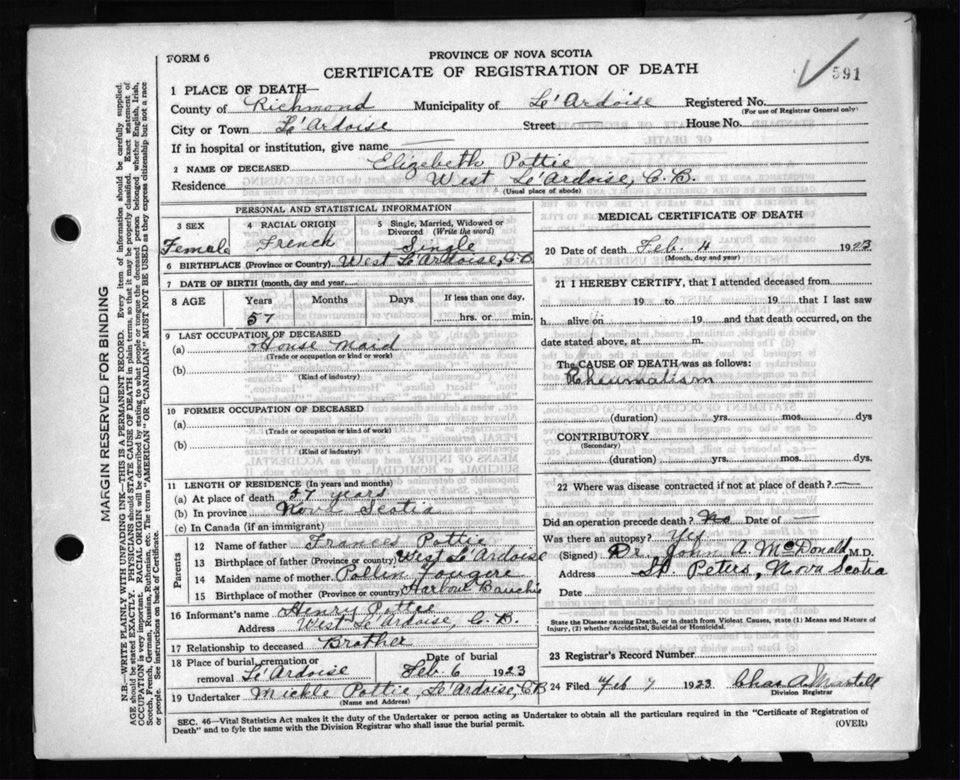 FORM 6
PROVINCE OF NOVA SCOTIA
CERTIFICATE OF REGISTRATION OF DEATH
591
1 PLACE OF DEATH—
County of Richmond Municipality of Le'Ardoise Registered No.
(For use of Registrar General only)
City or Town Le'Ardoise Street House No.
If in hospital or institution, give name —
2 NAME OF DECEASED Elizebeth Pottie
Residence West Le'Ardoise, C.B.
(Usual place of abode)
PERSONAL AND STATISTICAL INFORMATION
3 SEX 4 RACIAL ORIGIN 5 Single, Married, Widowed or Divorced (Write the word)
Female French Single
6 BIRTHPLACE (Province or Country) West Le'Ardoise, C.B
7 DATE OF BIRTH (month, day and year)
8 AGE Years Months Days If less than one day,
57 hrs. or min.
9 LAST OCCUPATION OF DECEASED
(a) House Maid
(Trade or occupation or kind or work)
(b)
(Kind of industry)
10 FORMER OCCUPATION OF DECEASED
(a)
(Trade or occupation or kind of work)
(b)
(Kind of industry)
11 LENGTH OF RESIDENCE (In years and months)
(a) At place of death 57 years
(b) In province Nova Scotia
(c) In Canada (if an immigrant)
Parents
12 Name of father Frances Pottie
13 Birthplace of father (Province or country) West Le'Ardoise
14 Maiden name of mother Pollin Fougere
15 Birthplace of mother (Province or country) Harbour Bauchie
16 Informant's name Henry Pottie
Address West Le'Ardoise, C.B.
17 Relationship to deceased Brother
18 Place of burial, cremation or removal Le'Ardoise Date of burial Feb. 6 1923
19 Undertaker Mickle Pottie, Le'Ardoise, CB
(Name and Address)
MEDICAL CERTIFICATE OF DEATH
20 Date of death Feb. 4 1923
(Month, day and year)
21 I HEREBY CERTIFY, that I attended deceased from
19 to 19 that I last saw
h alive on 19 and that death occurred, on the
date stated above, at m.
The CAUSE OF DEATH was as follows:
Rheumatism
(duration) yrs. mos. dys
CONTRIBUTORY
(Secondary)
(duration) yrs. mos. dys.
22 Where was disease contracted if not at place of death? —
Did an operation precede death? No Date of —
Was there an autopsy? Yes
(Signed) Dr. John A. McDonald, M.D.
Address St. Peters, Nova Scotia
Date
State the Disease causing Death, or in death from Violent Causes, state (1) Means and Nature of Injury, (2) whether Accidental, Suicidal or Homicidal.
23 Registrar's Record Number
24 Filed Feb 7 1923 Chas A Martell
Division Registrar
SEC. 46—Vital Statistics Act makes it the duty of the Undertaker or person acting as Undertaker to obtain all the particulars required in the "Certificate of Registration of
Death" and to fyle the same with the Division Registrar who shall issue the burial permit. (OVER)
MARGIN RESERVED FOR BINDING
N.B.—WRITE PLAINLY WITH UNFADING INK—THIS IS A PERMANENT RECORD. Every item of information should be carefully supplied.
AGE should be stated EXACTLY. PHYSICIANS should STATE CAUSE OF DEATH in plain terms, so that it may be properly classified. Exact statement of
OCCUPATION is very important. RACIAL ORIGIN will be described by stating to what people or tongue the deceased person belonged whether English, Irish,
Scotch, French, German, Russian, Ruthenian, etc. The terms "AMERICAN" OR "CANADIAN" MUST NOT BE USED as they express citizenship but not a race
or people. See instructions on back of Certificate.